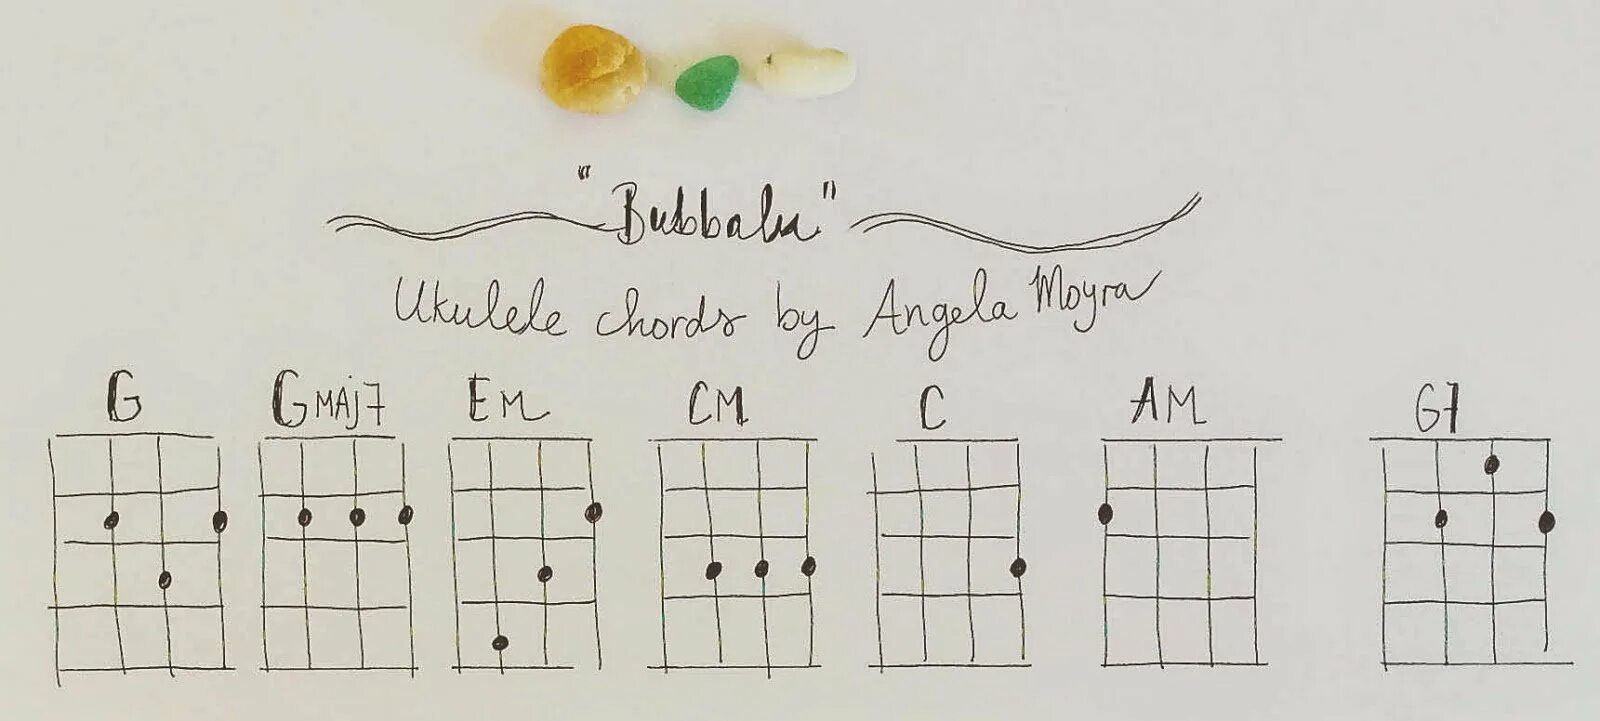 "Bubbalu"
Ukulele chords by Angela Moyra
G GMAJ7 EM CM C AM G7